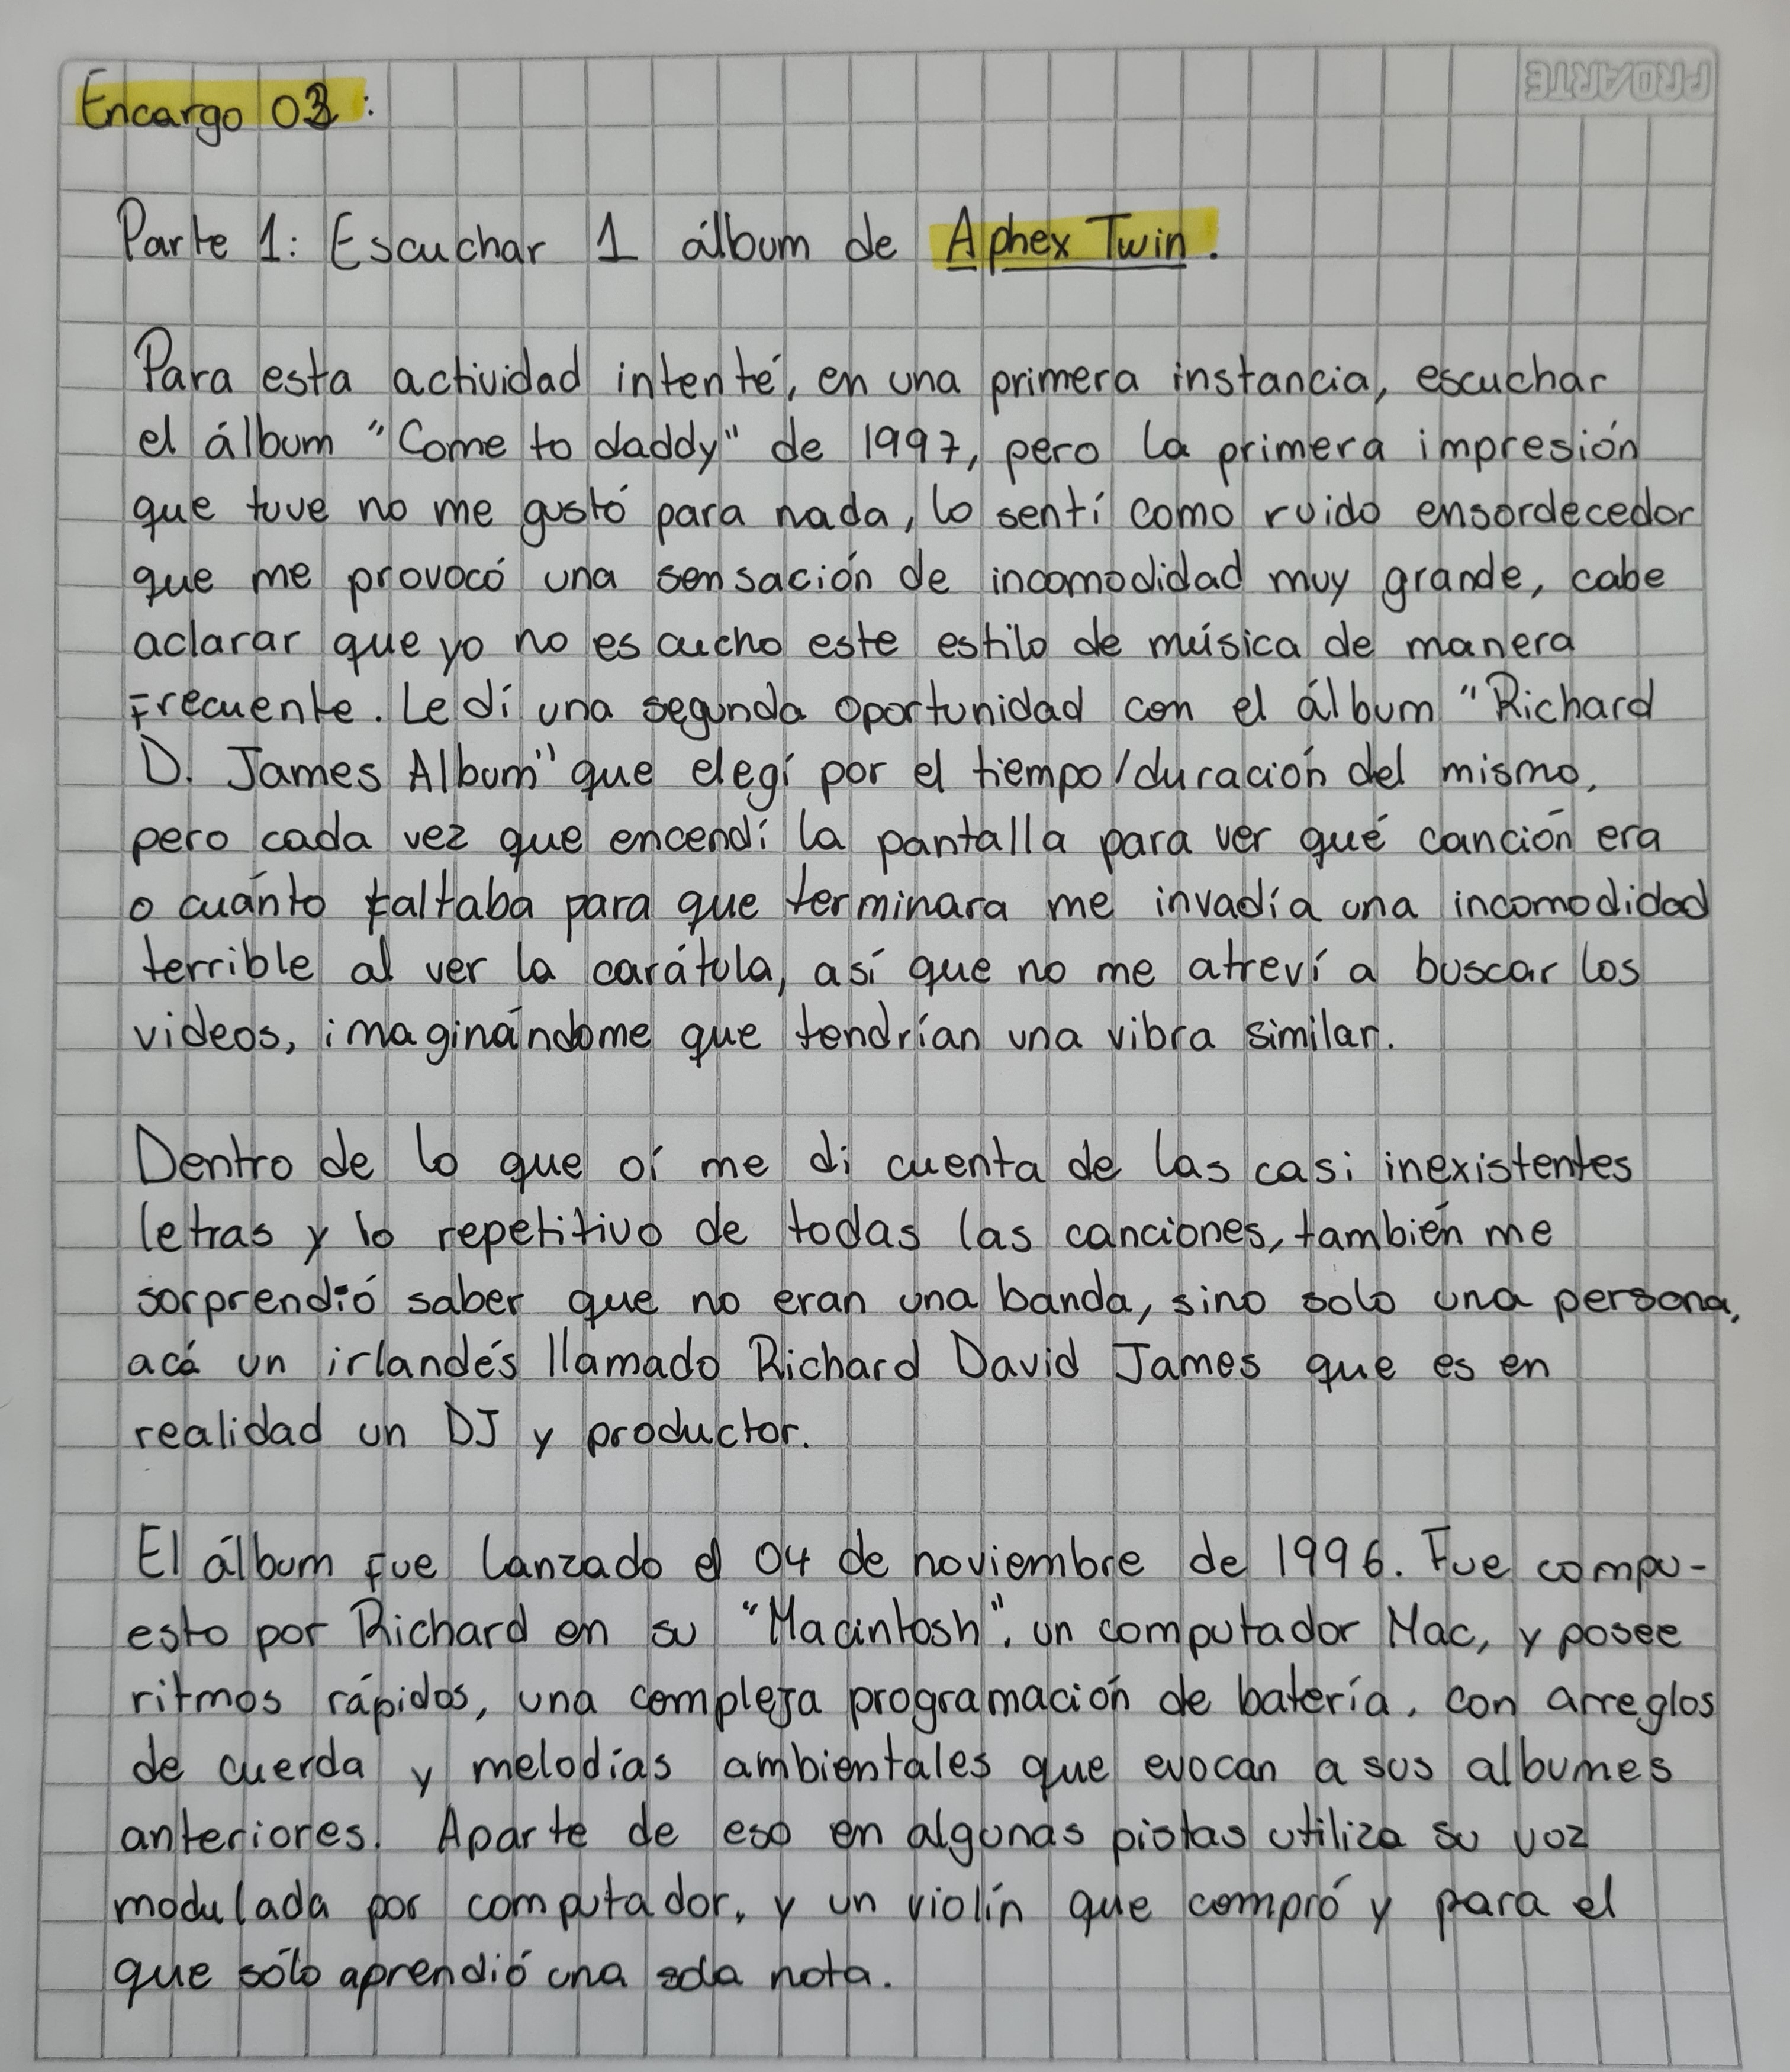 PROARTE
Encargo 03:
Parte 1: Escuchar 1 álbum de Aphex Twin.
Para esta actividad intenté, en una primera instancia, escuchar
el álbum "Come to daddy" de 1997, pero la primera impresión
que tuve no me gustó para nada, lo sentí como ruido ensordecedor
que me provocó una sensación de incomodidad muy grande, cabe
aclarar que yo no escucho este estilo de música de manera
frecuente. Le dí una segunda oportunidad con el álbum "Richard
D. James Album" que elegí por el tiempo/duración del mismo,
pero cada vez que encendí la pantalla para ver qué canción era
o cuánto faltaba para que terminara me invadía una incomodidad
terrible al ver la carátula, así que no me atreví a buscar los
videos, imaginándome que tendrían una vibra similar.
Dentro de lo que oí me di cuenta de las casi inexistentes
letras y lo repetitivo de todas las canciones, también me
sorprendió saber que no eran una banda, sino solo una persona,
acá un irlandés llamado Richard David James que es en
realidad un DJ y productor.
El álbum fue lanzado el 04 de noviembre de 1996. Fue compu-
esto por Richard en su "Macintosh", un computador Mac, y posee
ritmos rápidos, una compleja programación de batería, con arreglos
de cuerda y melodías ambientales que evocan a sus albumes
anteriores. Aparte de eso en algunas pistas utiliza su voz
modulada por computador, y un violín que compró y para el
que sólo aprendió una sola nota.